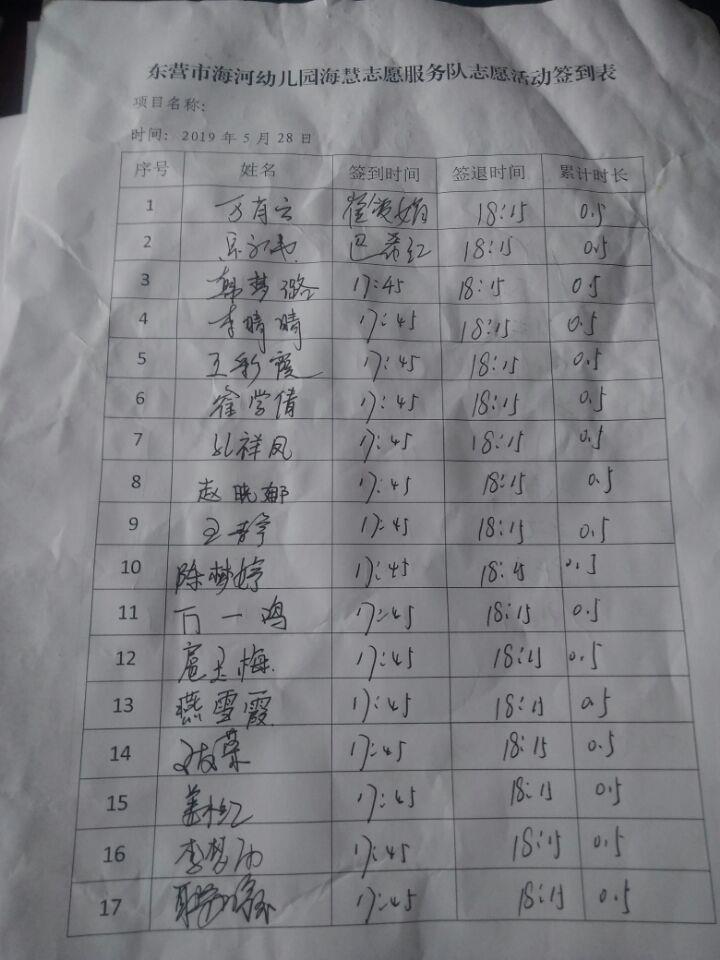 东营市海河幼儿园海慧志愿服务队志愿活动签到表
项目名称:
时间: 2019 年 5 月 28 日
序号 姓名 签到时间 签退时间 累计时长
1 18:15 0.5
2 巴希红 18:15 0.5
3 韩梦璐 17:45 18:15 0.5
4 李晴晴 17:45 18:15 0.5
5 王彩霞 17:45 18:15 0.5
6 徐学倩 17:45 18:15 0.5
7 孔祥凤 17:45 18:15 0.5
8 赵晓娜 17:45 18:15 0.5
9 王静 17:45 18:15 0.5
10 陈梦婷 17:45 18:15 0.5
11 万一鸣 17:45 18:15 0.5
12 扈玉梅 17:45 18:15 0.5
13 燕雪霞 17:45 18:15 0.5
14 17:45 18:15 0.5
15 姜红 17:45 18:15 0.5
16 李梦 17:45 18:15 0.5
17 17:45 18:15 0.5